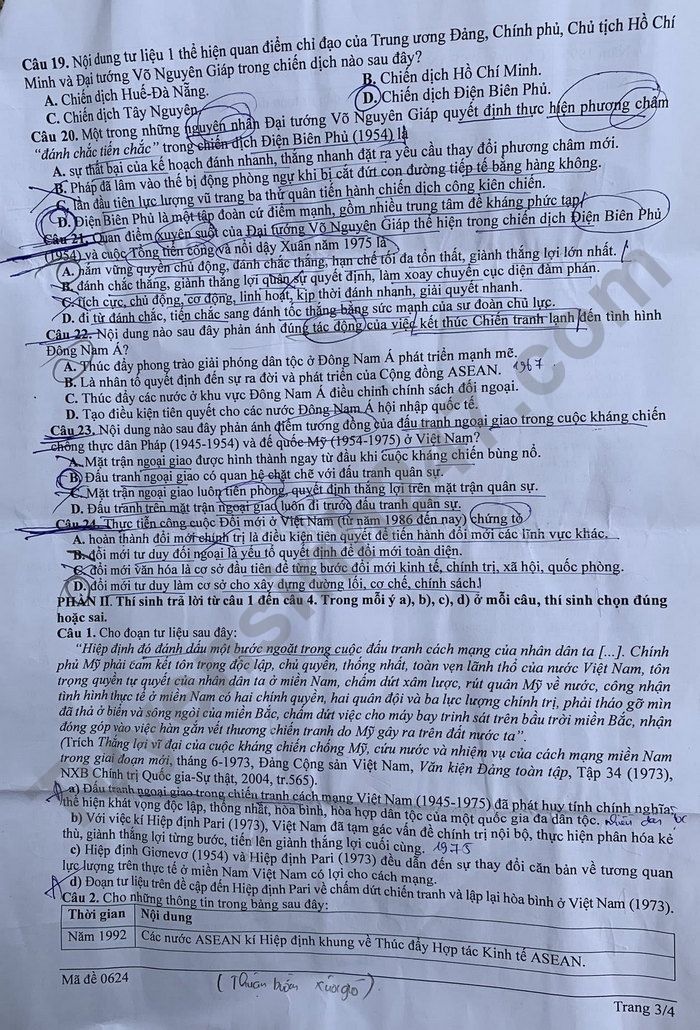 Câu 19. Nội dung tư liệu 1 thể hiện quan điểm chỉ đạo của Trung ương Đảng, Chính phủ, Chủ tịch Hồ Chí
Minh và Đại tướng Võ Nguyên Giáp trong chiến dịch nào sau đây?
A. Chiến dịch Huế-Đà Nẵng. B. Chiến dịch Hồ Chí Minh.
C. Chiến dịch Tây Nguyên. D. Chiến dịch Điện Biên Phủ.
Câu 20. Một trong những nguyên nhân Đại tướng Võ Nguyên Giáp quyết định thực hiện phương châm
"đánh chắc tiến chắc" trong chiến dịch Điện Biên Phủ (1954) là
A. sự thất bại của kế hoạch đánh nhanh, thắng nhanh đặt ra yêu cầu thay đổi phương châm mới.
B. Pháp đã lâm vào thế bị động phòng ngự khi bị cắt đứt con đường tiếp tế bằng hàng không.
C. lần đầu tiên lực lượng vũ trang ba thứ quân tiến hành chiến dịch công kiên chiến.
D. Điện Biên Phủ là một tập đoàn cứ điểm mạnh, gồm nhiều trung tâm đề kháng phức tạp.
Câu 21. Quan điểm xuyên suốt của Đại tướng Võ Nguyên Giáp thể hiện trong chiến dịch Điện Biên Phủ
(1954) và cuộc Tổng tiến công và nổi dậy Xuân năm 1975 là
A. nắm vững quyền chủ động, đánh chắc thắng, hạn chế tối đa tổn thất, giành thắng lợi lớn nhất.
B. đánh chắc thắng, giành thắng lợi quân sự quyết định, làm xoay chuyển cục diện đàm phán.
C. tích cực, chủ động, cơ động, linh hoạt, kịp thời đánh nhanh, giải quyết nhanh.
D. đi từ đánh chắc, tiến chắc sang đánh tốc thắng bằng sức mạnh của sư đoàn chủ lực.
Câu 22. Nội dung nào sau đây phản ánh đúng tác động của việc kết thúc Chiến tranh lạnh đến tình hình
Đông Nam Á?
A. Thúc đẩy phong trào giải phóng dân tộc ở Đông Nam Á phát triển mạnh mẽ.
B. Là nhân tố quyết định đến sự ra đời và phát triển của Cộng đồng ASEAN. 1967
C. Thúc đẩy các nước ở khu vực Đông Nam Á điều chỉnh chính sách đối ngoại.
D. Tạo điều kiện tiên quyết cho các nước Đông Nam Á hội nhập quốc tế.
Câu 23. Nội dung nào sau đây phản ánh điểm tương đồng của đấu tranh ngoại giao trong cuộc kháng chiến
chống thực dân Pháp (1945-1954) và đế quốc Mỹ (1954-1975) ở Việt Nam?
A. Mặt trận ngoại giao được hình thành ngay từ đầu khi cuộc kháng chiến bùng nổ.
B. Đấu tranh ngoại giao có quan hệ chặt chẽ với đấu tranh quân sự.
C. Mặt trận ngoại giao luôn tiên phong, quyết định thắng lợi trên mặt trận quân sự.
D. Đấu tranh trên mặt trận ngoại giao luôn đi trước đấu tranh quân sự.
Câu 24. Thực tiễn công cuộc Đổi mới ở Việt Nam (từ năm 1986 đến nay) chứng tỏ
A. hoàn thành đổi mới chính trị là điều kiện tiên quyết để tiến hành đổi mới các lĩnh vực khác.
B. đổi mới tư duy đối ngoại là yếu tố quyết định để đổi mới toàn diện.
C. đổi mới văn hóa là cơ sở đầu tiên để từng bước đổi mới kinh tế, chính trị, xã hội, quốc phòng.
D. đổi mới tư duy làm cơ sở cho xây dựng đường lối, cơ chế, chính sách.
PHẦN II. Thí sinh trả lời từ câu 1 đến câu 4. Trong mỗi ý a), b), c), d) ở mỗi câu, thí sinh chọn đúng
hoặc sai.
Câu 1. Cho đoạn tư liệu sau đây:
"Hiệp định đó đánh dấu một bước ngoặt trong cuộc đấu tranh cách mạng của nhân dân ta [...]. Chính
phủ Mỹ phải cam kết tôn trọng độc lập, chủ quyền, thống nhất, toàn vẹn lãnh thổ của nước Việt Nam, tôn
trọng quyền tự quyết của nhân dân ta ở miền Nam, chấm dứt xâm lược, rút quân Mỹ về nước, công nhận
tình hình thực tế ở miền Nam có hai chính quyền, hai quân đội và ba lực lượng chính trị, phải tháo gỡ mìn
đã thả ở biển và sông ngòi của miền Bắc, chấm dứt việc cho máy bay trinh sát trên bầu trời miền Bắc, nhận
đóng góp vào việc hàn gắn vết thương chiến tranh do Mỹ gây ra trên đất nước ta".
(Trích Thắng lợi vĩ đại của cuộc kháng chiến chống Mỹ, cứu nước và nhiệm vụ của cách mạng miền Nam
trong giai đoạn mới, tháng 6-1973, Đảng Cộng sản Việt Nam, Văn kiện Đảng toàn tập, Tập 34 (1973),
NXB Chính trị Quốc gia-Sự thật, 2004, tr.565).
a) Đấu tranh ngoại giao trong chiến tranh cách mạng Việt Nam (1945-1975) đã phát huy tính chính nghĩa,
thể hiện khát vọng độc lập, thống nhất, hòa bình, hòa hợp dân tộc của một quốc gia đa dân tộc.
b) Với việc kí Hiệp định Pari (1973), Việt Nam đã tạm gác vấn đề chính trị nội bộ, thực hiện phân hóa kẻ
thù, giành thắng lợi từng bước, tiến lên giành thắng lợi cuối cùng. 1975
c) Hiệp định Giơnevơ (1954) và Hiệp định Pari (1973) đều dẫn đến sự thay đổi căn bản về tương quan
lực lượng trên thực tế ở miền Nam Việt Nam có lợi cho cách mạng.
d) Đoạn tư liệu trên đề cập đến Hiệp định Pari về chấm dứt chiến tranh và lập lại hòa bình ở Việt Nam (1973).
Câu 2. Cho những thông tin trong bảng sau đây:
Thời gian Nội dung
Năm 1992 Các nước ASEAN kí Hiệp định khung về Thúc đẩy Hợp tác Kinh tế ASEAN.
Mã đề 0624
(Thuận buồm xuôi gió).
Trang 3/4